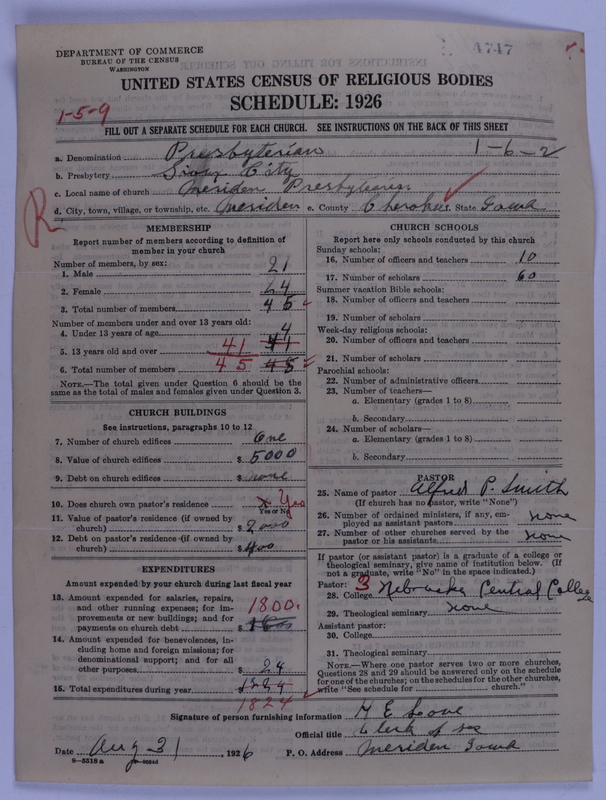 DEPARTMENT OF COMMERCE
BUREAU OF THE CENSUS
WASHINGTON
4747
UNITED STATES CENSUS OF RELIGIOUS BODIES
SCHEDULE: 1926
1-5-9
FILL OUT A SEPARATE SCHEDULE FOR EACH CHURCH. SEE INSTRUCTIONS ON THE BACK OF THIS SHEET
a. Denomination Presbyterian 1-6-2
b. Presbytery Sioux City
c. Local name of church Meriden Presbyterian
d. City, town, village, or township, etc. Meriden e. County Cherokee f. State Iowa
R
MEMBERSHIP
Report number of members according to definition of member in your church
Number of members, by sex:
1. Male 21
2. Female 24
3. Total number of members 45
Number of members under and over 13 years old:
4. Under 13 years of age 4
5. 13 years old and over 41 41
6. Total number of members 45 45
NOTE.—The total given under Question 6 should be the
same as the total of males and females given under Question 3.
CHURCH BUILDINGS
See instructions, paragraphs 10 to 12
7. Number of church edifices One
8. Value of church edifices $ 5000
9. Debt on church edifices $ none
10. Does church own pastor's residence Yes
(Yes or No)
11. Value of pastor's residence (if owned by
church) $ 2000
12. Debt on pastor's residence (if owned by
church) $ 400
EXPENDITURES
Amount expended by your church during last fiscal year
13. Amount expended for salaries, repairs,
and other running expenses; for im-
provements or new buildings; and for
payments on church debt $ 1800
14. Amount expended for benevolences, in-
cluding home and foreign missions; for
denominational support; and for all
other purposes $ 24
15. Total expenditures during year 1824
1824
CHURCH SCHOOLS
Report here only schools conducted by this church
Sunday schools:
16. Number of officers and teachers 10
17. Number of scholars 60
Summer vacation Bible schools:
18. Number of officers and teachers
19. Number of scholars
Week-day religious schools:
20. Number of officers and teachers
21. Number of scholars
Parochial schools:
22. Number of administrative officers
23. Number of teachers—
a. Elementary (grades 1 to 8)
b. Secondary
24. Number of scholars—
a. Elementary (grades 1 to 8)
b. Secondary
PASTOR
25. Name of pastor Alfred P. Smith
(If church has no pastor, write "None")
26. Number of ordained ministers, if any, em-
ployed as assistant pastors none
27. Number of other churches served by the
pastor or his assistants none
If pastor (or assistant pastor) is a graduate of a college or
theological seminary, give name of institution below. (If
not a graduate, write "No" in the space indicated.)
Pastor: 3
28. College Nebraska Central College
29. Theological seminary none
Assistant pastor:
30. College
31. Theological seminary
NOTE.—Where one pastor serves two or more churches,
Questions 28 and 29 should be answered only on the schedule
for one of the churches; on the schedules for the other churches,
write "See schedule for church."
Signature of person furnishing information M E Love
Official title Clerk of
Date Aug 31, 1926 P. O. Address Meriden Iowa
8-5518 a